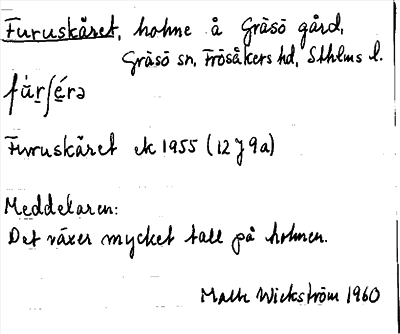 Furuskäret, holme å Gräsö gård,
Gräsö sn, Frösåkers hd, Sthlms l.
Furuskäret ek 1955 (12 J 9a)
Meddelaren:
Det växer mycket tall på holmen.
Wickström 1960